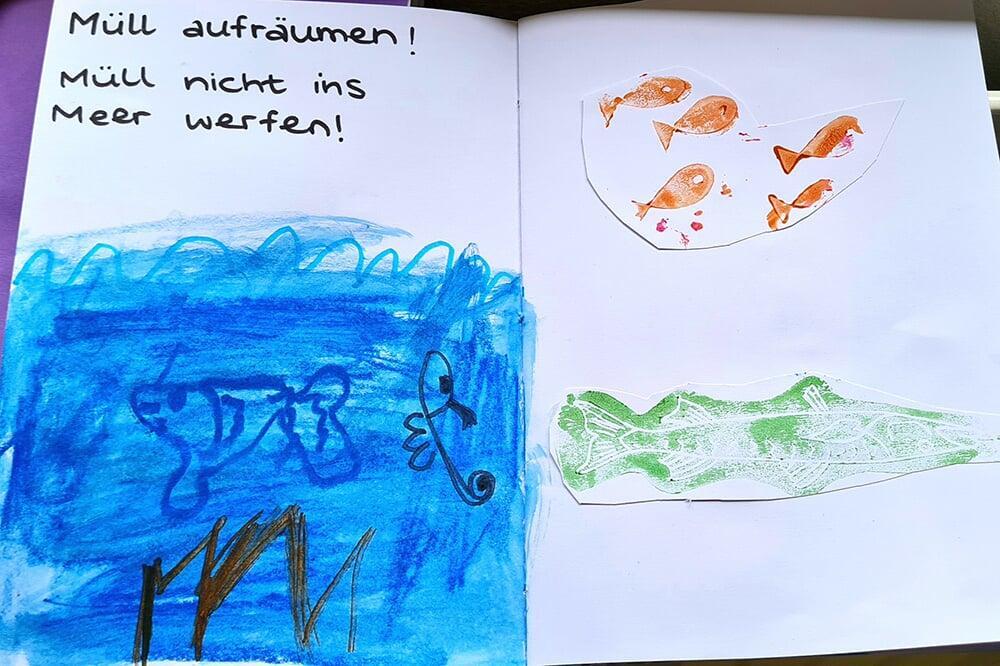 Müll aufräumen!
Müll nicht ins
Meer werfen!